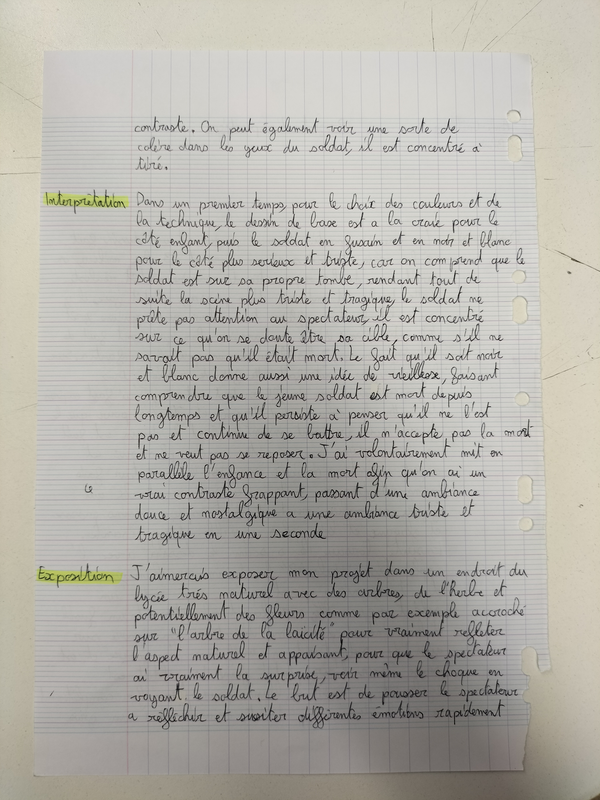 contraste. On peut également voir une sorte de
colère dans les yeux du soldat, il est concentré à
tiré.
Interprétation Dans un premier temps, pour le choix des couleurs et de
la technique, le dessin de base est a la craie pour le
côté enfant, puis le soldat en fusain et en noir et blanc
pour le côté plus serieux et triste, car on comprend que le
soldat est sur sa propre tombe, rendant tout de
suite la scène plus triste et tragique, le soldat ne
prête pas attention au spectateur, il est concentré
sur ce qu'on se doute être sa cible, comme s'il ne
savait pas qu'il était mort. Le fait qu'il soit noir
et blanc donne aussi une idée de vieillesse, faisant
comprendre que le jeune soldat est mort depuis
longtemps et qu'il persiste à penser qu'il ne l'est
pas et continue de se battre, il n'accepte pas la mort
et ne veut pas se reposer. J'ai volontairement mit en
parallèle l'enfance et la mort afin qu'on ai un
vrai contraste frappant, passant d'une ambiance
douce et nostalgique a une ambiance triste et
tragique en une seconde
Exposition J'aimerais exposer mon projet dans un endroit du
lycée très naturel avec des arbres, de l'herbe et
potentiellement des fleurs comme par exemple accroché
sur "l'arbre de la laïcité" pour vraiment refleter
l'aspect naturel et appaisant, pour que le spectateur
ai vraiment la surprise, voir même le choque en
voyant le soldat. Le but est de pousser le spectateur
a réfléchir et susiter différentes émotions rapidement